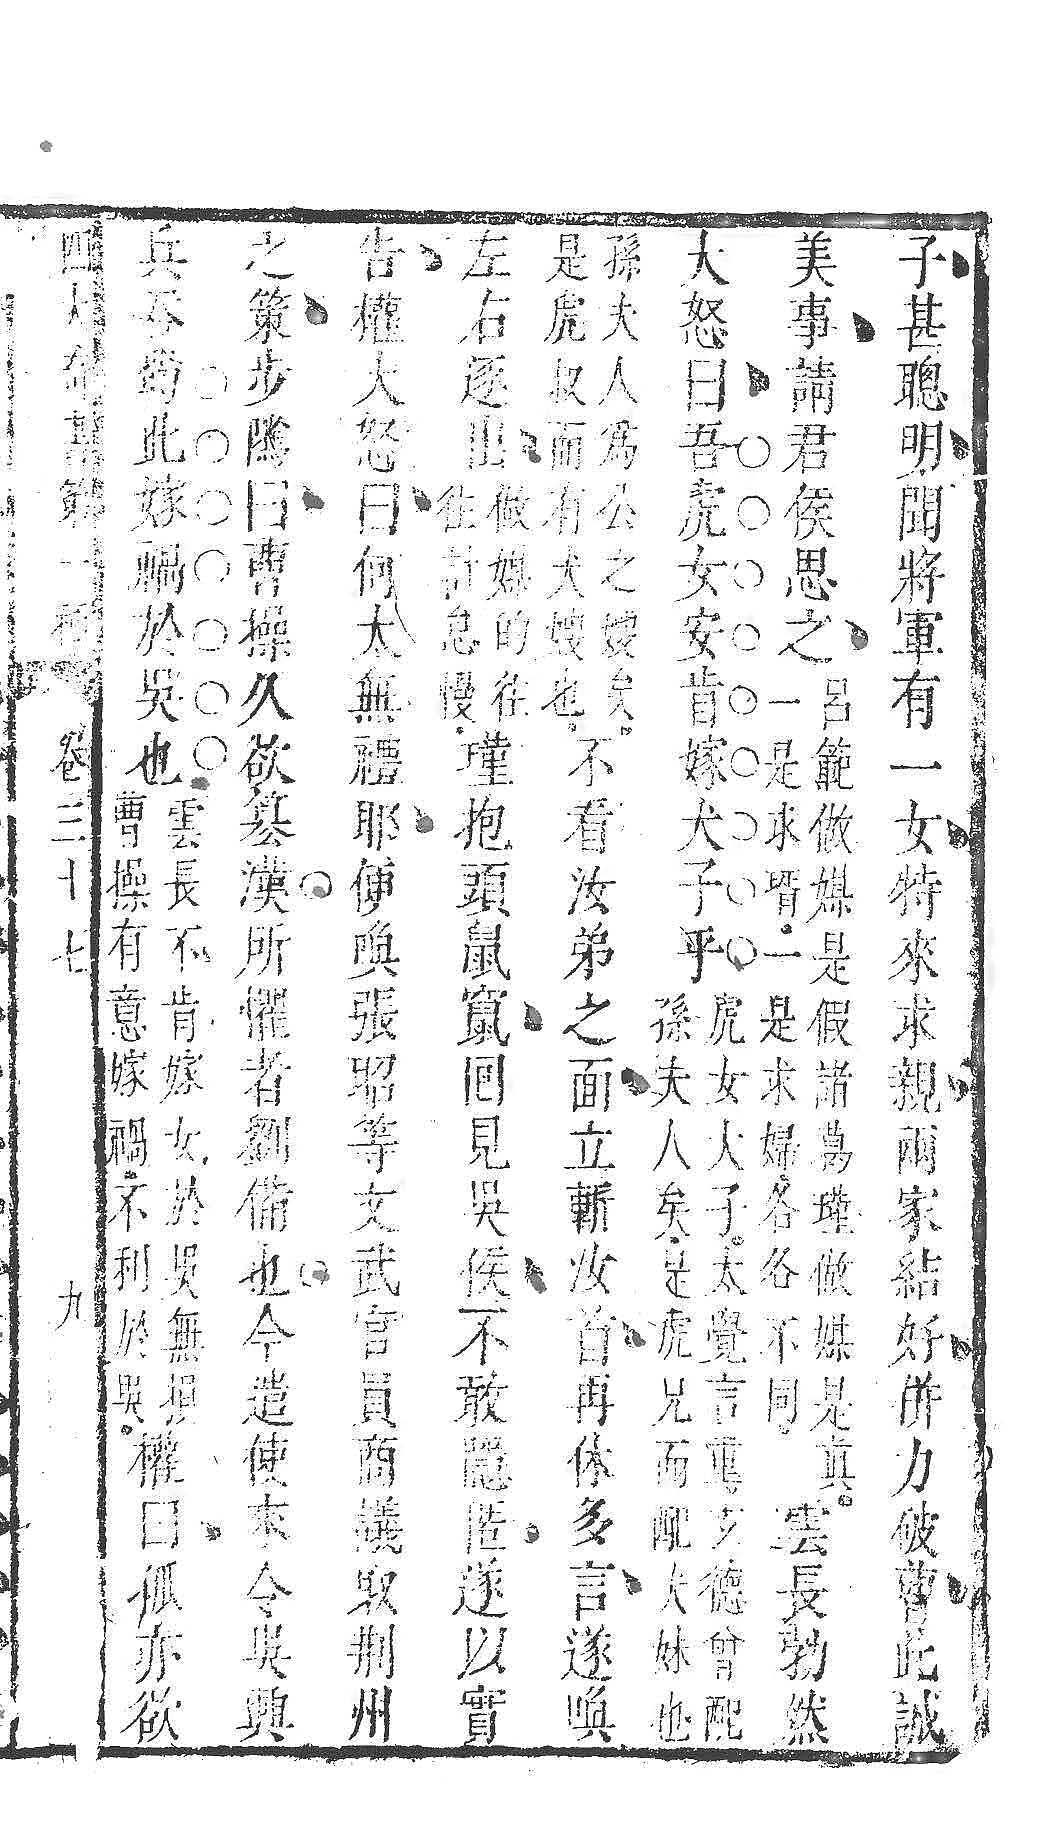 子甚聰明聞將軍有一女特來求親兩家結好併力破曹此誠
美事請君侯思之呂範做媒是假諸葛瑾做媒是真一是求壻一是求婦各各不同雲長勃然
大怒曰吾虎女安肯嫁犬子乎虎女犬子太覺言重玄德曾配孫夫人矣是虎兄而配犬妹也
孫夫人爲公之嫂矣是虎叔而有犬嫂也不看汝弟之面立斬汝首再休多言遂喚
左右逐出做媒的往往討怠慢瑾抱頭鼠竄回見吳侯不敢隱匿遂以實
告權大怒曰何太無禮耶便喚張昭等文武官員商議取荆州
之策步隲曰曹操久欲篡漢所懼者劉備也今遣使來令吳興
兵吞蜀此嫁禍於吳也雲長不肯嫁女於吳無損曹操有意嫁禍不利於吳權曰孤亦欲
四大奇書第一種 卷三十七 九